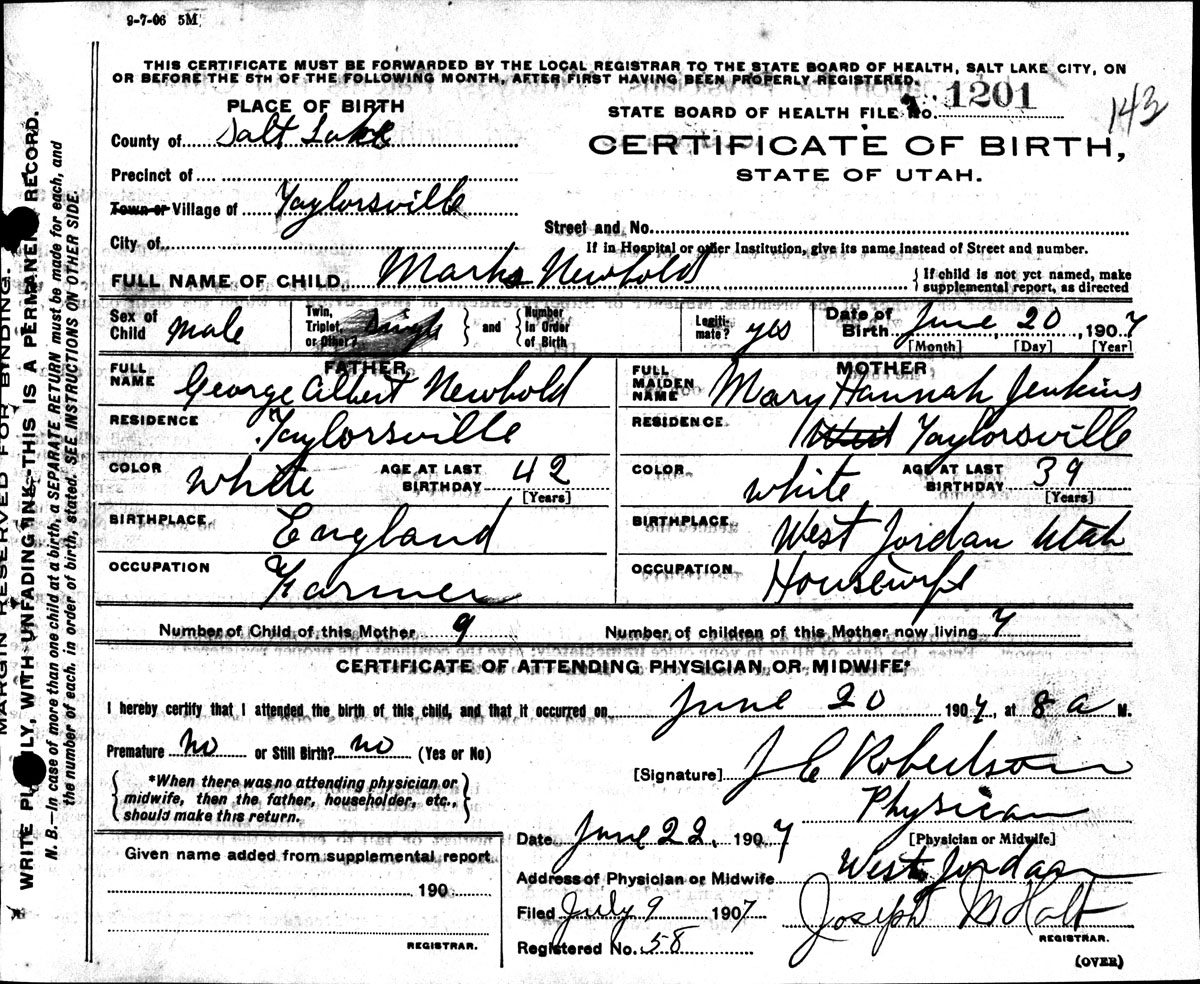 9-7-06 5M
THIS CERTIFICATE MUST BE FORWARDED BY THE LOCAL REGISTRAR TO THE STATE BOARD OF HEALTH, SALT LAKE CITY, ON
OR BEFORE THE 5TH OF THE FOLLOWING MONTH, AFTER FIRST HAVING BEEN PROPERLY REGISTERED.
PLACE OF BIRTH
County of Salt Lake
Precinct of
Town or Village of Taylorsville
City of
STATE BOARD OF HEALTH FILE No. 1201
143
CERTIFICATE OF BIRTH,
STATE OF UTAH.
Street and No.
If in Hospital or other Institution, give its name instead of Street and number.
FULL NAME OF CHILD Marks Newbold
If child is not yet named, make
supplemental report, as directed
Sex of Child Male
Twin, Triplet, or Other? Single and Number in Order of Birth
Legiti-mate? yes
Date of Birth June 20, 1907
[Month] [Day] [Year]
FATHER
FULL NAME George Albert Newbold
RESIDENCE Taylorsville
COLOR White AGE AT LAST BIRTHDAY 42
[Years]
BIRTHPLACE England
OCCUPATION Farmer
MOTHER
FULL MAIDEN NAME Mary Hannah Jenkins
RESIDENCE West Taylorsville
COLOR white AGE AT LAST BIRTHDAY 39
[Years]
BIRTHPLACE West Jordan Utah
OCCUPATION Housewife
Number of Child of this Mother 9 Number of children of this Mother now living 7
CERTIFICATE OF ATTENDING PHYSICIAN OR MIDWIFE*
I hereby certify that I attended the birth of this child, and that it occurred on June 20 1907, at 8 a M.
Premature No or Still Birth? no (Yes or No)
*When there was no attending physician or
midwife, then the father, householder, etc.,
should make this return.
[Signature] J C Robertson
Physican
[Physician or Midwife]
Date June 22, 1907
Address of Physician or Midwife West Jordan
Filed July 9 1907
Joseph M Holt
REGISTRAR.
Registered No. 58
(OVER)
Given name added from supplemental report
190
REGISTRAR.
MARGIN RESERVED FOR BINDING.
WRITE PLAINLY, WITH UNFADING INK—THIS IS A PERMANENT RECORD.
N. B.—In case of more than one child at a birth, a SEPARATE RETURN must be made for each, and
the number of each, in order of birth, stated. SEE INSTRUCTIONS ON OTHER SIDE.